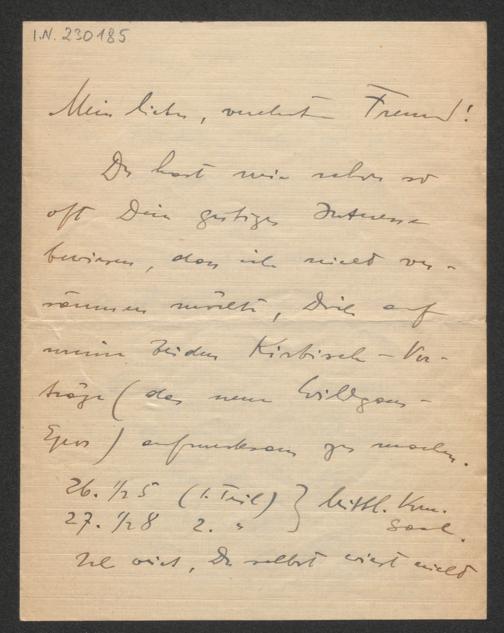 I.N. 230185
Mein lieber, verehrter Freund!
Du hast mir schon so
oft Dein gütiges Interesse
bewiesen, dass ich nicht ver-
säumen möchte, Dich auf
meine beiden Kirbisch-Vor-
träge (das neue Wildgans-
Epos) aufmerksam zu machen.
26. 1/2 5 (1. Teil) } Mittl. Konz.
27. 1/2 8 2. " } Saal.
Ich weiß, Du selbst wirst nicht